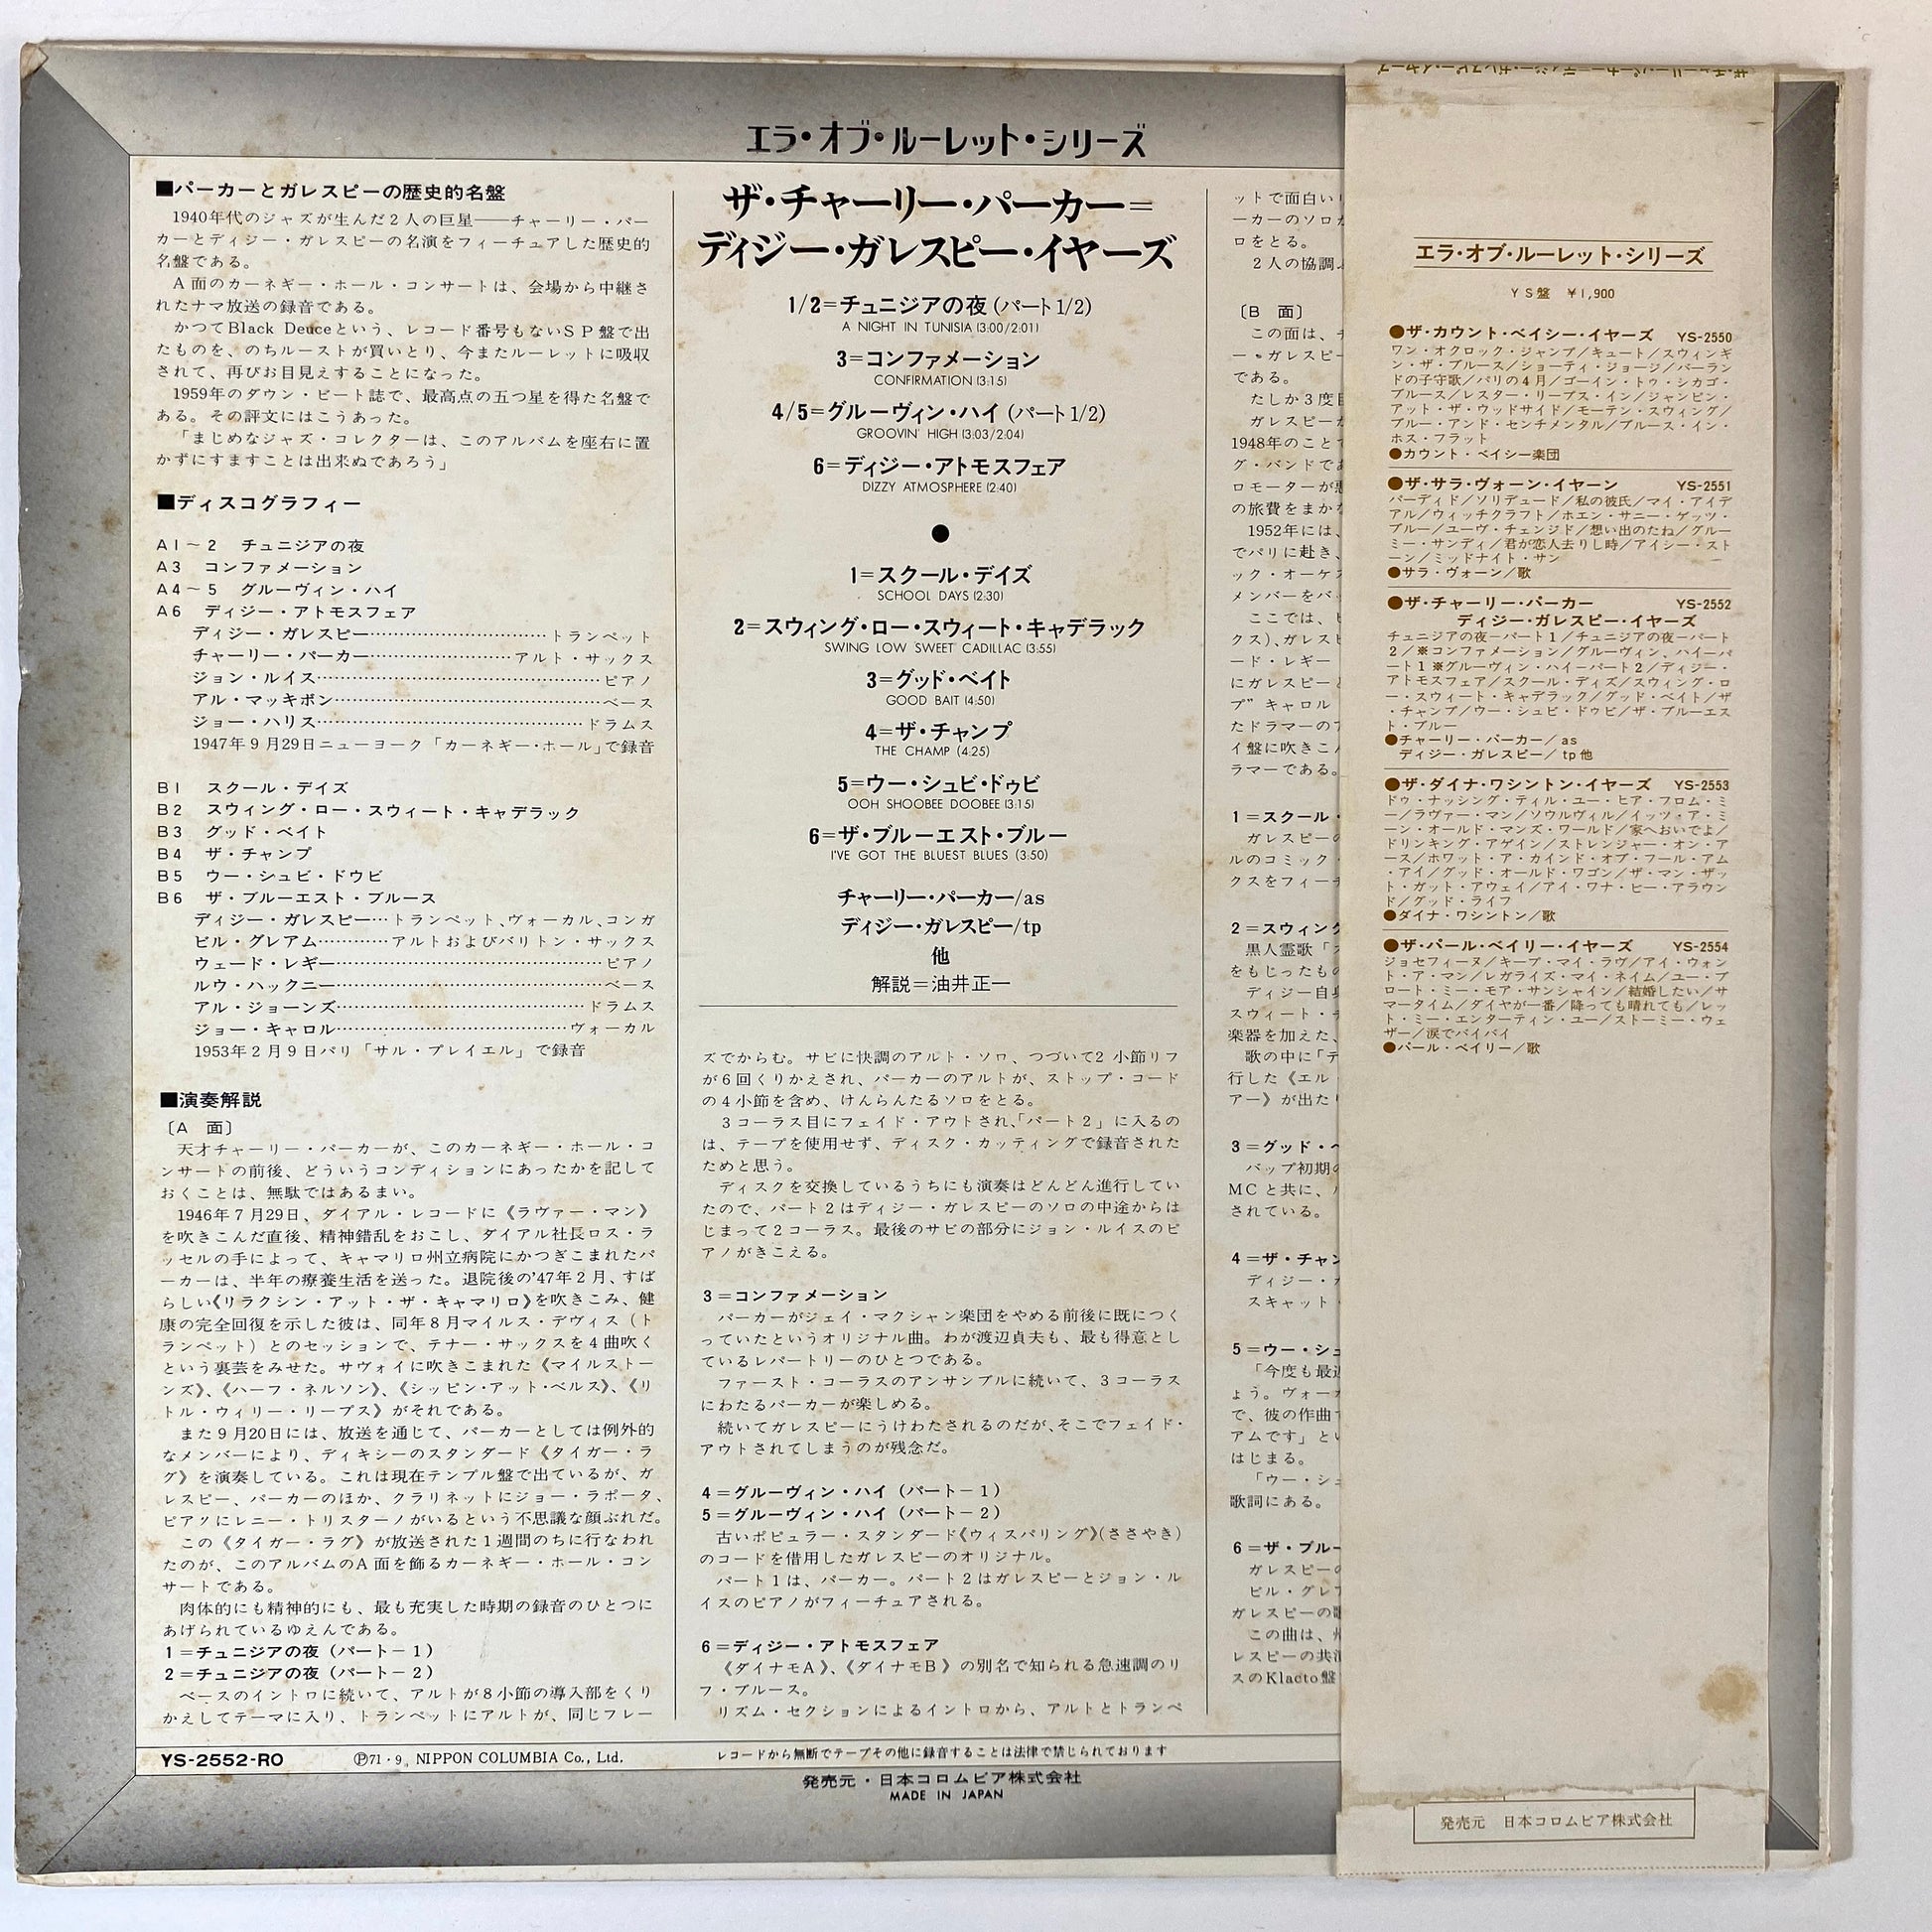 エラ・オブ・ルーレット・シリーズ
■パーカーとガレスピーの歴史的名盤
1940年代のジャズが生んだ2人の巨星――チャーリー・パー
カーとディジー・ガレスピーの名演をフィーチュアした歴史的
名盤である。
A面のカーネギー・ホール・コンサートは、会場から中継さ
れたナマ放送の録音である。
かつてBlack Deuceという、レコード番号もないSP盤で出
たものを、のちルーストが買いとり、今またルーレットに吸収
されて、再びお目見えすることになった。
1959年のダウン・ビート誌で、最高点の五つ星を得た名盤で
ある。その評文にはこうあった。
「まじめなジャズ・コレクターは、このアルバムを座右に置
かずにすますことは出来ぬであろう」
■ディスコグラフィー
A1～2 チュニジアの夜
A3 コンファメーション
A4～5 グルーヴィン・ハイ
A6 ディジー・アトモスフェア
ディジー・ガレスピー……トランペット
チャーリー・パーカー……アルト・サックス
ジョン・ルイス……ピアノ
アル・マッキボン……ベース
ジョー・ハリス……ドラムス
1947年9月29日ニューヨーク「カーネギー・ホール」で録音
B1 スクール・デイズ
B2 スウィング・ロー・スウィート・キャデラック
B3 グッド・ベイト
B4 ザ・チャンプ
B5 ウー・シュビ・ドウビ
B6 ザ・ブルーエスト・ブルース
ディジー・ガレスピー…トランペット、ヴォーカル、コンガ
ビル・グレアム……アルトおよびバリトン・サックス
ウェード・レギー……ピアノ
ルウ・ハックニー……ベース
アル・ジョーンズ……ドラムス
ジョー・キャロル……ヴォーカル
1953年2月9日パリ「サル・プレイエル」で録音
■演奏解説
〔A 面〕
天才チャーリー・パーカーが、このカーネギー・ホール・コ
ンサートの前後、どういうコンディションにあったかを記して
おくことは、無駄ではあるまい。
1946年7月29日、ダイアル・レコードに《ラヴァー・マン》
を吹きこんだ直後、精神錯乱をおこし、ダイアル社長ロス・ラ
ッセルの手によって、キャマリロ州立病院にかつぎこまれたパ
ーカーは、半年の療養生活を送った。退院後の'47年2月、すば
らしい《リラクシン・アット・ザ・キャマリロ》を吹きこみ、健
康の完全回復を示した彼は、同年8月マイルス・デヴィス（ト
ランペット）とのセッションで、テナー・サックスを4曲吹く
という裏芸をみせた。サヴォイに吹きこまれた《マイルストー
ンズ》、《ハーフ・ネルソン》、《シッピン・アット・ベルス》、《リ
トル・ウィリー・リープス》がそれである。
また9月20日には、放送を通じて、パーカーとしては例外的
なメンバーにより、ディキシーのスタンダード《タイガー・ラ
グ》を演奏している。これは現在テンプル盤で出ているが、ガ
レスピー、パーカーのほか、クラリネットにジョー・ラポータ、
ピアノにレニー・トリスターノがいるという不思議な顔ぶれだ。
この《タイガー・ラグ》が放送された1週間のちに行なわれ
たのが、このアルバムのA面を飾るカーネギー・ホール・コン
サートである。
肉体的にも精神的にも、最も充実した時期の録音のひとつに
あげられているゆえんである。
1＝チュニジアの夜（パート－1）
2＝チュニジアの夜（パート－2）
ベースのイントロに続いて、アルトが8小節の導入部をくり
かえしてテーマに入り、トランペットにアルトが、同じフレー
ザ・チャーリー・パーカー＝
ディジー・ガレスピー・イヤーズ
1/2＝チュニジアの夜（パート1/2）
A NIGHT IN TUNISIA (3:00/2:01)
3＝コンファメーション
CONFIRMATION (3:15)
4/5＝グルーヴィン・ハイ（パート1/2）
GROOVIN' HIGH (3:03/2:04)
6＝ディジー・アトモスフェア
DIZZY ATMOSPHERE (2:40)
●
1＝スクール・デイズ
SCHOOL DAYS (2:30)
2＝スウィング・ロー・スウィート・キャデラック
SWING LOW SWEET CADILLAC (3:55)
3＝グッド・ベイト
GOOD BAIT (4:50)
4＝ザ・チャンプ
THE CHAMP (4:25)
5＝ウー・シュビ・ドゥビ
OOH SHOOBEE DOOBEE (3:15)
6＝ザ・ブルーエスト・ブルー
I'VE GOT THE BLUEST BLUES (3:50)
チャーリー・パーカー/as
ディジー・ガレスピー/tp
他
解説＝油井正一
ズでからむ。サビに快調のアルト・ソロ、つづいて2小節リフ
が6回くりかえされ、パーカーのアルトが、ストップ・コード
の4小節を含め、けんらんたるソロをとる。
3コーラス目にフェイド・アウトされ、「パート2」に入るの
は、テープを使用せず、ディスク・カッティングで録音された
ためと思う。
ディスクを交換しているうちにも演奏はどんどん進行してい
たので、パート2はディジー・ガレスピーのソロの中途からは
じまって2コーラス。最後のサビの部分にジョン・ルイスのピ
アノがきこえる。
3＝コンファメーション
パーカーがジェイ・マクシャン楽団をやめる前後に既につく
っていたというオリジナル曲。わが渡辺貞夫も、最も得意とし
ているレパートリーのひとつである。
ファースト・コーラスのアンサンブルに続いて、3コーラス
にわたるパーカーが楽しめる。
続いてガレスピーにうけわたされるのだが、そこでフェイド・
アウトされてしまうのが残念だ。
4＝グルーヴィン・ハイ（パート－1）
5＝グルーヴィン・ハイ（パート－2）
古いポピュラー・スタンダード《ウィスパリング》（ささやき）
のコードを借用したガレスピーのオリジナル。
パート1は、パーカー。パート2はガレスピーとジョン・ル
イスのピアノがフィーチュアされる。
6＝ディジー・アトモスフェア
《ダイナモA》、《ダイナモB》の別名で知られる急速調のリ
フ・ブルース。
リズム・セクションによるイントロから、アルトとトランペ
ットで面白い
ーカーのソロ
ロをとる。
2人の協調
〔B 面〕
この面は、
ー・ガレスピー
である。
たしか3度目
ガレスピー
1948年のこと
グ・バンドで
ロモーターが
の旅費をまかな
1952年には、
でパリに赴き、
ック・オーケス
メンバーをバ
ここでは、
クス）、ガレスピ
ード・レギー
にガレスピーと
プ”キャロル
たドラマーの
イ盤に吹きこ
ラマーである。
1＝スクール・
ガレスピーの
ルのコミック・
クスをフィーチ
2＝スウィング
黒人霊歌「
をもじったもの
ディジー自身
スウィート・
楽器を加えた、
歌の中に「デ
行した《エル・
アー》が出たり
3＝グッド・ベ
バップ初期の
MCと共に、
されている。
4＝ザ・チャン
ディジー・
スキャット・
5＝ウー・シュ
「今度も最近
ょう。ヴォー
で、彼の作曲
アムです」とい
はじまる。
「ウー・シュ
歌詞にある。
6＝ザ・ブルー
ガレスピーの
ビル・グレア
ガレスピーの歌
この曲は、
レスピーの共演
スのKlacto盤
YS-2552-RO
Ⓟ71・9。NIPPON COLUMBIA Co., Ltd.
レコードから無断でテープその他に録音することは法律で禁じられております
発売元・日本コロムビア株式会社
MADE IN JAPAN
ザ・チャーリー・パーカー＝ディジー・ガレスピー・イヤーズ
エラ・オブ・ルーレット・シリーズ
YS盤 ￥1,900
●ザ・カウント・ベイシー・イヤーズ YS-2550
ワン・オクロック・ジャンプ／キュート／スウィンギ
ン・ザ・ブルース／ショーティ・ジョージ／バーラン
ドの子守歌／パリの4月／ゴーイン・トゥ・シカゴ・
ブルース／レスター・リープス・イン／ジャンピン・
アット・ザ・ウッドサイド／モーテン・スウィング／
ブルー・アンド・センチメンタル／ブルース・イン・
ホス・フラット
●カウント・ベイシー楽団
●ザ・サラ・ヴォーン・イヤーン YS-2551
パーディド／ソリデュード／私の彼氏／マイ・アイデ
アル／ウィッチクラフト／ホエン・サニー・ゲッツ・
ブルー／ユーヴ・チェンジド／想い出のたね／グルー
ミー・サンディ／君が恋人去りし時／アイシー・スト
ーン／ミッドナイト・サン
●サラ・ヴォーン／歌
●ザ・チャーリー・パーカー YS-2552
ディジー・ガレスピー・イヤーズ
チュニジアの夜－パート1／チュニジアの夜－パート
2／※コンファメーション／グルーヴィン、ハイーパ
ート1※グルーヴィン・ハイーパート2／ディジー・
アトモスフェア／スクール・ディズ／スウィング・ロ
ー・スウィート・キャデラック／グッド・ベイト／ザ
・チャンプ／ウー・シュビ・ドゥビ／ザ・ブルーエス
ト・ブルー
●チャーリー・パーカー／as
ディジー・ガレスピー／tp他
●ザ・ダイナ・ワシントン・イヤーズ YS-2553
ドゥ・ナッシング・ティル・ユー・ヒア・フロム・ミ
ー／ラヴァー・マン／ソウルヴィル／イッツ・ア・ミ
ーン・オールド・マンズ・ワールド／家へおいでよ／
ドリンキング・アゲイン／ストレンジャー・オン・ア
ース／ホワット・ア・カインド・オブ・フール・アム
・アイ／グッド・オールド・ワゴン／ザ・マン・ザッ
ト・ガット・アウェイ／アイ・ワナ・ビー・アラウン
ド／グッド・ライフ
●ダイナ・ワシントン／歌
●ザ・パール・ベイリー・イヤーズ YS-2554
ジョセフィーヌ／キープ・マイ・ラヴ／アイ・ウォン
ト・ア・マン／レガライズ・マイ・ネイム／ユー・ブ
ロート・ミー・モア・サンシャイン／結婚したい／サ
マータイム／ダイヤが一番／降っても晴れても／レッ
ト・ミー・エンターティン・ユー／ストーミー・ウェ
ザー／涙でバイバイ
●パール・ベイリー／歌
発売元 日本コロムビア株式会社